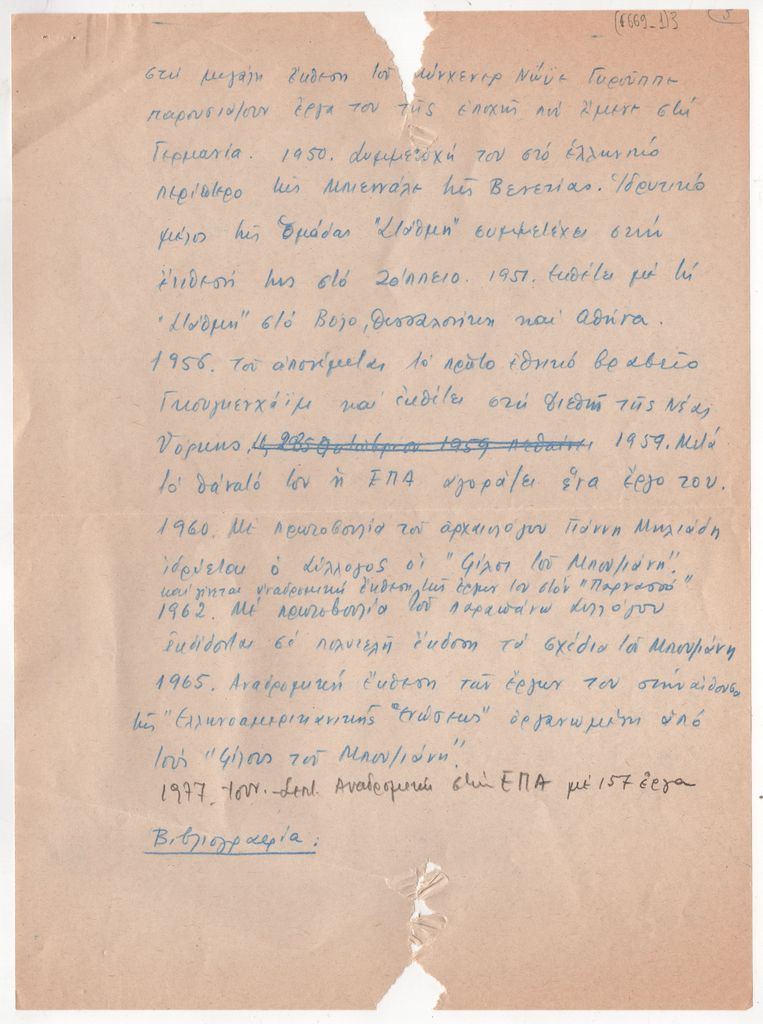 (4669_1)3 5
στή μεγάλη ἔκθεση τοῦ Μύνχενερ Νώϋε Γκρούππε
παρουσιάζουν ἔργα του τῆς ἐποχῆς πού ἔμενε στή
Γερμανία. 1950. Συμμετοχή του στό ἑλληνικό
περίπτερο τῆς Μπιεννάλε τῆς Βενετίας. Ἱδρυτικό
μέλος τῆς Ὁμάδας "Στάθμη" συμμετέχει στήν
ἔκθεσή της στό Ζάππειο. 1951. Ἐκθέτει μέ τή
"Στάθμη" στό Βόλο, Θεσσαλονίκη καί Ἀθήνα.
1956. τοῦ ἀπονέμεται τό πρῶτο ἐθνικό βραβεῖο
Γκουγκενχάϊμ καί ἐκθέτει στή Διεθνῆ τῆς Νέας
Ὑόρκης. 1959. Μετά
τό θάνατό του ἡ ΕΠΑ ἀγοράζει ἕνα ἔργο του.
1960. Μέ πρωτοβουλία τοῦ ἀρχαιολόγου Γιάννη Μηλιάδη
ἱδρύεται ὁ Σύλλογος οἱ "Φίλοι τοῦ Μπουζιάνη".
καί γίνεται ἀναδρομική ἔκθεση τῆς ἔργων του στόν "Παρνασσό"
1962. Μέ πρωτοβουλία τοῦ παραπάνω Συλλόγου
ἐκδίδονται σέ πολυτελή ἔκδοση τά σχέδια τοῦ Μπουζιάνη
1965. Ἀναδρομική ἔκθεση τῶν ἔργων του στήν αἴθουσα
τῆς "Ἑλληνοαμερικανικῆς Ἑνώσεως" ὀργανωμένη ἀπό
τούς "Φίλους τοῦ Μπουζιάνη".
1977. Ἰουν.-Σεπτ. Ἀναδρομική στήν ΕΠΑ μέ 157 ἔργα
Βιβλιογραφία: